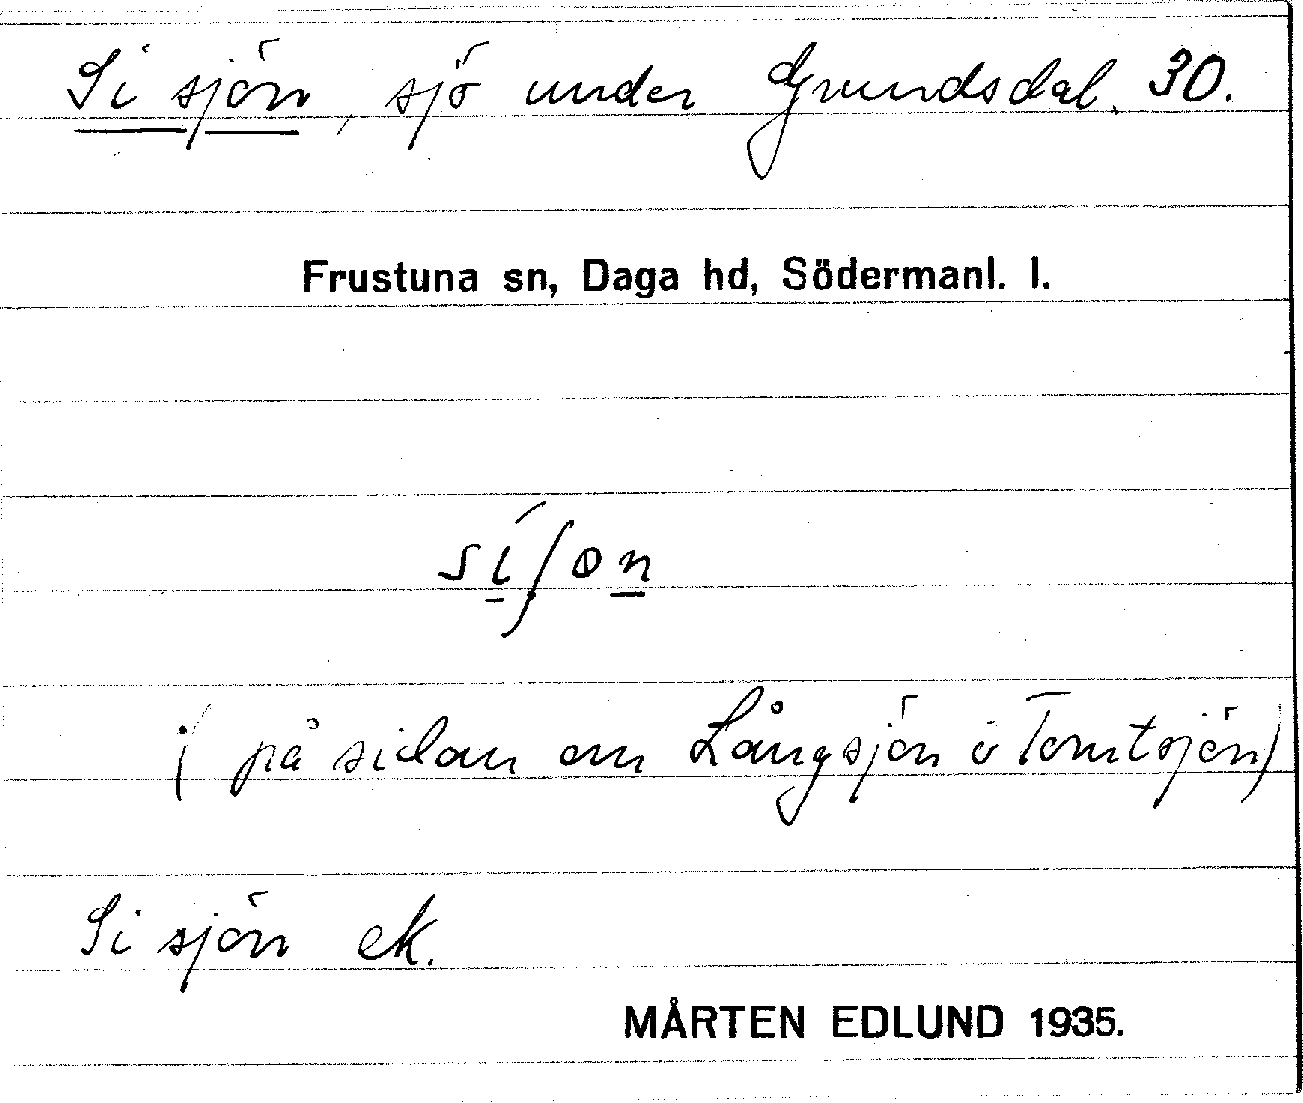 Sisjön, sjö under Grundsdal. 30.
Frustuna sn, Daga hd, Södermanl. l.
síʃon
(på sidan om Långsjön o Tomtsjön)
Sisjön ek.
MÅRTEN EDLUND 1935.